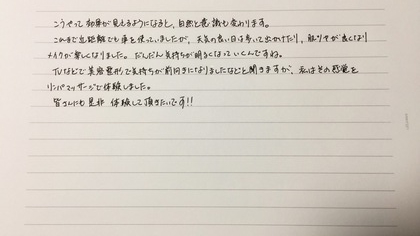 こうやって効果が見えるようになると、自然と意識も変わります。
これまで近距離でも車を使っていましたが、天気の良い日は歩いて出かけたり、肌ツヤが良くなり
メイクが楽しくなりました。だんだん気持ちが明るくなっていくんですね。
TVなどで美容整形で気持ちが前向きになりましたなどと聞きますが、私はその感覚を
リンパマッサージで体験しました。
皆さんにも是非 体験して頂きたいです!!